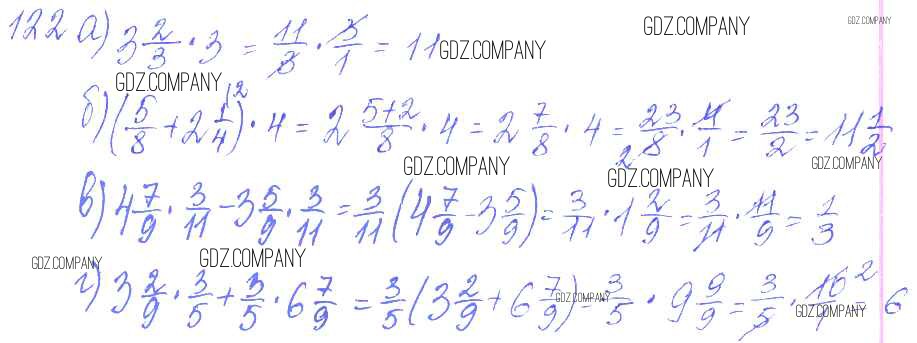 122 а) 3 2/3 · 3 = 11/3 · 3/1 = 11
GDZ.COMPANY
GDZ.COMPANY
GDZ.COMPANY
GDZ.COMPANY
б) (5/8 + 2 1/4 |2) · 4 = 2 (5+2)/8 · 4 = 2 7/8 · 4 = 23/8 2 · 4/1 = 23/2 = 11 1/2
GDZ.COMPANY
GDZ.COMPANY
GDZ.COMPANY
в) 4 7/9 · 3/11 - 3 5/9 · 3/11 = 3/11 (4 7/9 - 3 5/9) = 3/11 · 1 2/9 = 3/11 · 11/9 = 1/3
GDZ.COMPANY
GDZ.COMPANY
г) 3 2/9 · 3/5 + 3/5 · 6 7/9 = 3/5 (3 2/9 + 6 7/9) = 3/5 · 9 9/9 = 3/5 · 10 2/1 = 6
GDZ.COMPANY
GDZ.COMPANY